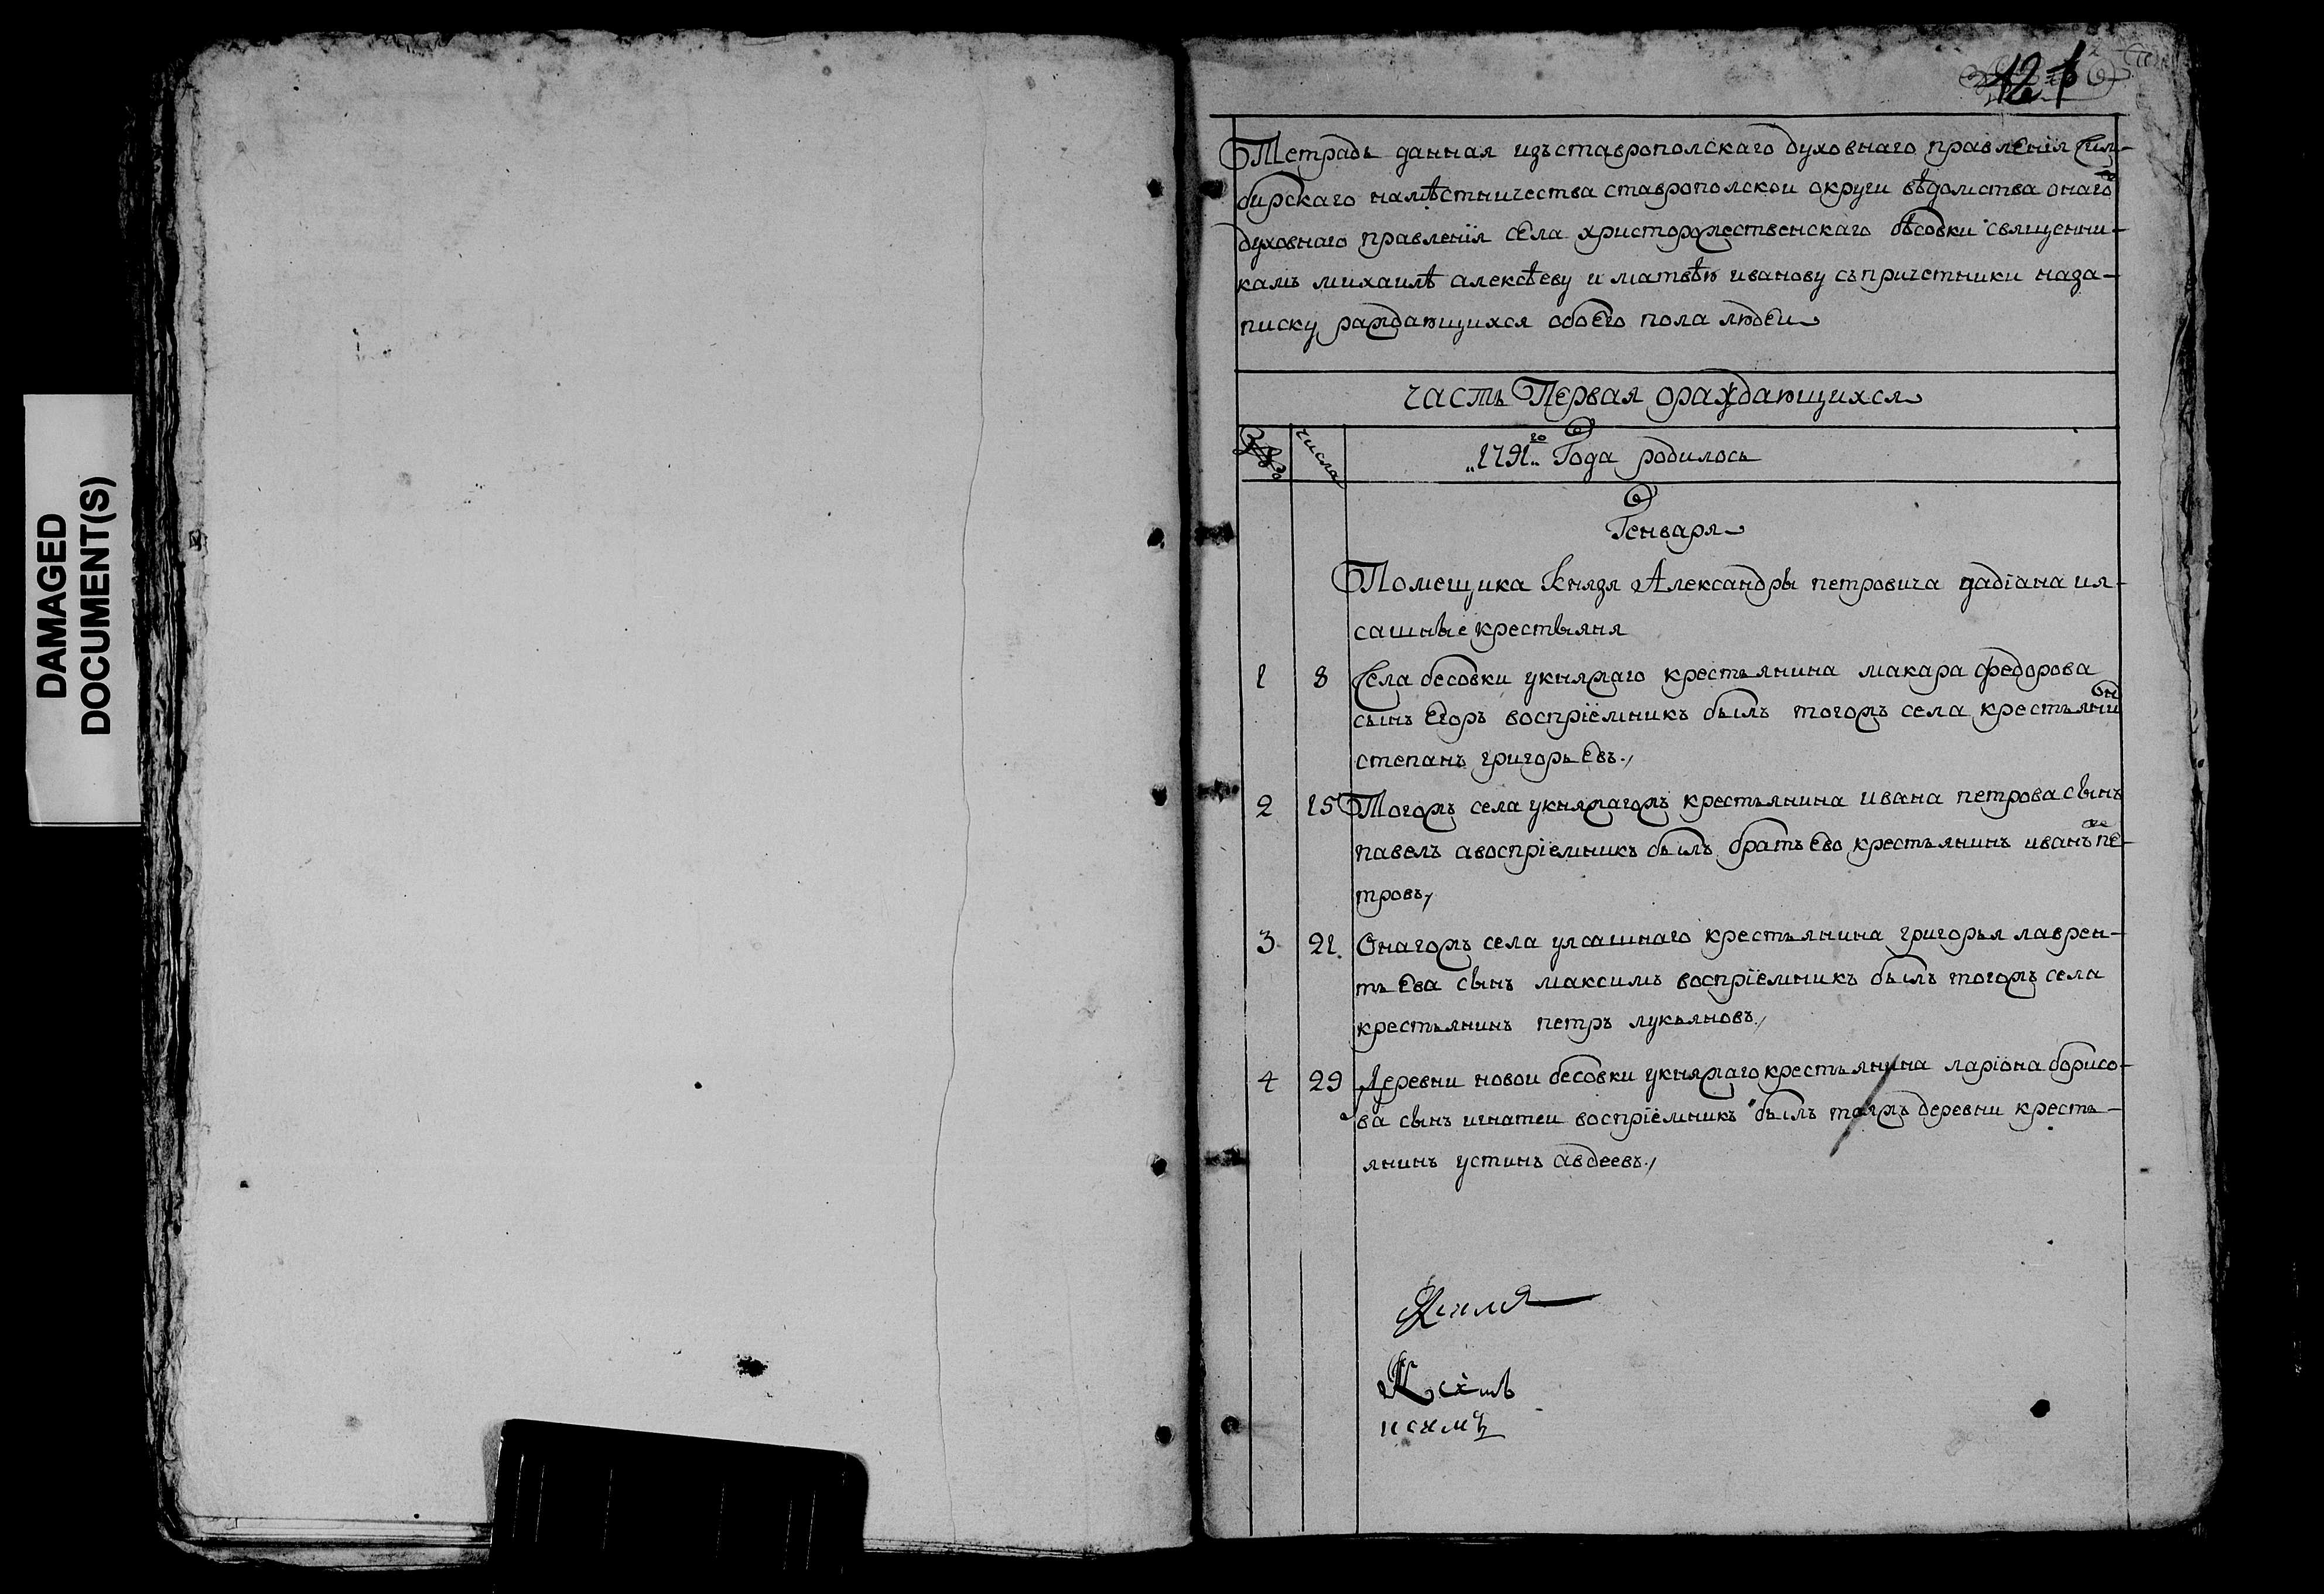 DAMAGED
DOCUMENT(S)
Тетрадь данная изъставрополскаго духовнаго правленія Сим-
бирскаго намѣстничества ставрополской округи вѣдомства онаго
духовнаго правленія села христорожественскаго бѣсовки священни-
камъ михаилѣ алексѣеву и матвѣю иванову съпричетники наза-
писку раждающихся обоего пола людей
часть Первая ораждающихся
числа
1791го Года родилось
Генваря
Помещика Князя Александры петровича дадіана ия-
сашные крестьяня
1 8 Села бесовки укняжаго крестьянина макара федорова
сынъ Егоръ воспріемникъ былъ тогожъ села крестьянинъ
степанъ григорьевъ
2 15 Тогожъ села укняжагожъ крестьянина ивана петрова сынъ
павелъ авоспріемникъ былъ братъ ево крестьянинъ иванъ пе-
тровъ
3 21 Онагожъ села уясашнаго крестьянина григорья лаврен-
тьева сынъ максимъ воспріемникъ былъ тогожъ села
крестьянинъ петръ лукьяновъ
4 29 Деревни новои бесовки укняжаго крестьянина ларіона борисо-
ва сынъ игнатеи воспріемникъ былъ тоежъ деревни кресть-
янинъ устинъ авдеевъ